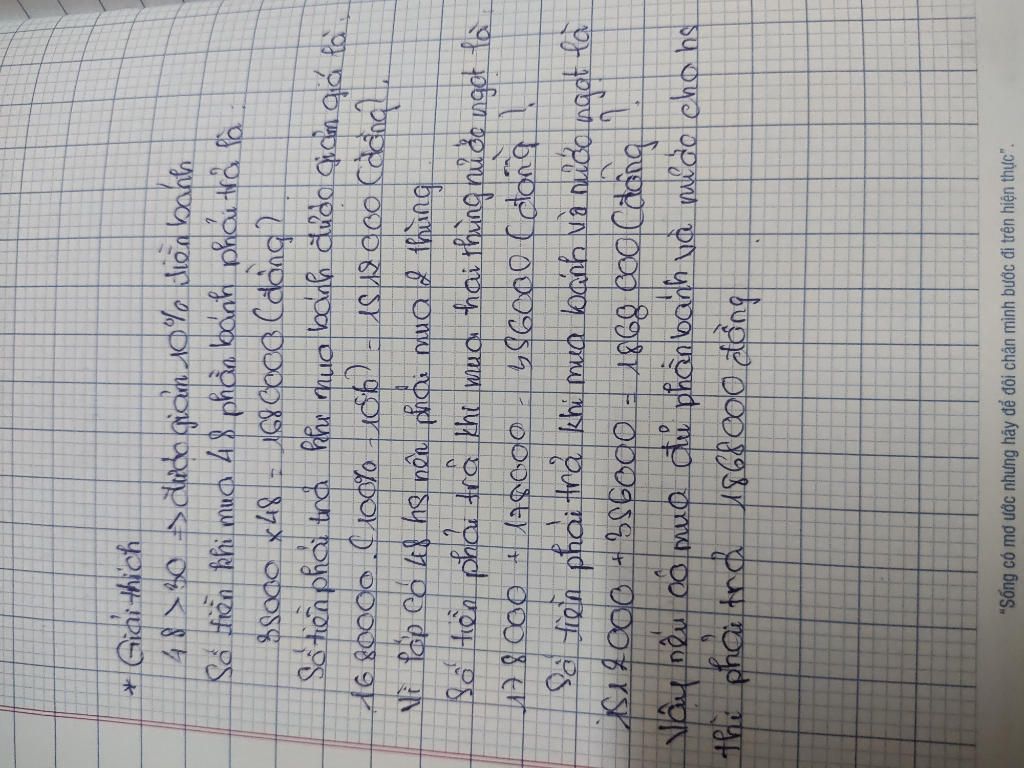 * Giải thích
48 > 30 => được giảm 10% tiền bánh
Số tiền khi mua 48 phần bánh phải trả là.
35000 x 48 = 1680000 (đồng)
Số tiền phải trả khi mua bánh được giảm giá là.
1680000.(100% - 10%) = 1512000 (đồng).
Vì lớp có 48 hs nên phải mua 2 thùng
Số tiền phải trả khi mua hai thùng nước ngọt là
178000 + 178000 = 356000 (đồng).
Số tiền phải trả khi mua bánh và nước ngọt là
1512000 + 356000 = 1868000 (đồng).
Vậy nếu cô mua đủ phần bánh và nước cho hs
thì phải trả 1868000 đồng
"Sống có mơ ước nhưng hãy để đôi chân mình bước đi trên hiện thực".